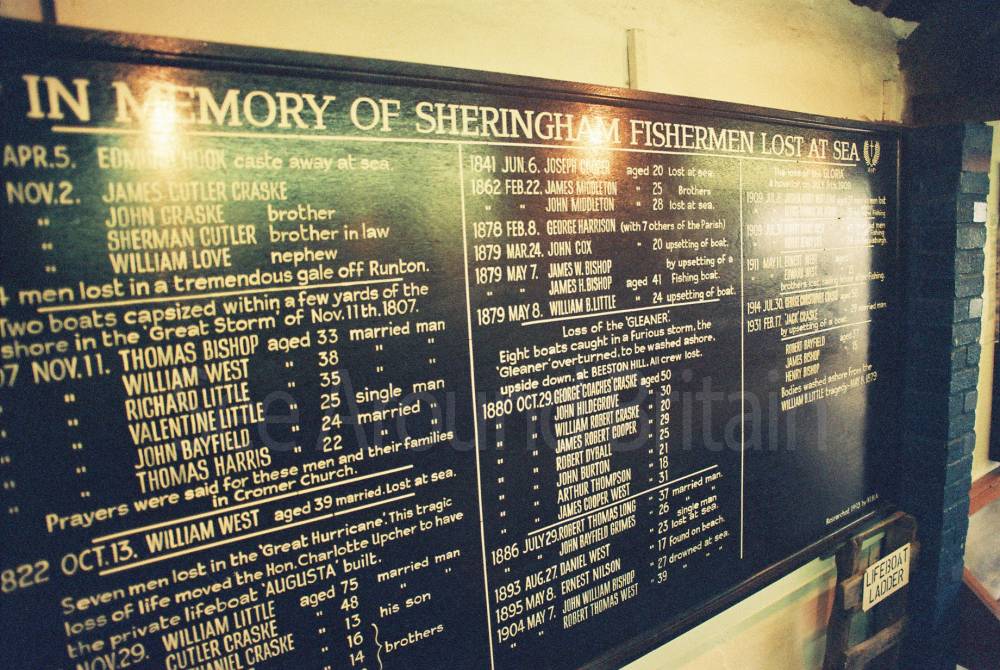 IN MEMORY OF SHERINGHAM FISHERMEN LOST AT SEA
APR. 5. EDMUND HOOK caste away at sea
NOV. 2. JAMES CUTLER CRASKE
" JOHN CRASKE brother
" SHERMAN CUTLER brother in law
" WILLIAM LOVE nephew
men lost in a tremendous gale off Runton.
Two boats capsized within a few yards of the
shore in the 'Great Storm' of Nov. 11th. 1807.
07 NOV. 11. THOMAS BISHOP aged 33 married man
" " WILLIAM WEST " 38 " "
" " RICHARD LITTLE " 35 " "
" " VALENTINE LITTLE " 25 single man
" " JOHN BAYFIELD " 24 married "
" " THOMAS HARRIS " 22 " "
Prayers were said for these men and their families
in Cromer Church.
822 OCT. 13. WILLIAM WEST aged 39 married. Lost at sea.
Seven men lost in the 'Great Hurricane'. This tragic
loss of life moved the Hon. Charlotte Upcher to have
the private lifeboat 'AUGUSTA' built.
NOV. 29. WILLIAM LITTLE aged 75 married man
CUTLER CRASKE " 48 " "
CRASKE " 13 his son
" 16 } brothers
" 14
1841 JUN. 6. JOSEPH COOPER aged 20 Lost at sea.
1862 FEB. 22. JAMES MIDDLETON " 25 Brothers
" " JOHN MIDDLETON " 28 lost at sea.
1878 FEB. 8. GEORGE HARRISON (with 7 others of the Parish)
1879 MAR. 24. JOHN COX " 20 upsetting of boat.
1879 MAY 7. JAMES W. BISHOP by upsetting of a
" " JAMES H. BISHOP aged 41 Fishing boat.
1879 MAY 8. WILLIAM B. LITTLE " 24 upsetting of boat.
Loss of the 'GLEANER'.
Eight boats caught in a furious storm, the
'Gleaner' overturned, to be washed ashore,
upside down, at BEESTON HILL. All crew lost.
1880 OCT. 29. GEORGE 'COACHES' CRASKE aged 50
" JOHN HILDEGROVE " 30
" WILLIAM ROBERT CRASKE " 20
" JAMES ROBERT COOPER " 29
" ROBERT DYBALL " 25
" JOHN BURTON " 21
" ARTHUR THOMPSON " 18
" JAMES COOPER WEST " 31
1886 JULY 29. ROBERT THOMAS LONG " 37 married man.
" JOHN BAYFIELD GRIMES " 26 single man
1893 AUG. 27. DANIEL WEST " 23 lost at sea.
1895 MAY 8. ERNEST NILSON " 17 found on beach.
1904 MAY 7. JOHN WILLIAM BISHOP " 27 drowned at sea.
" ROBERT THOMAS WEST " 39 " "
The loss of the 'GLORIA'
1909 JUL
1909 JUL
1911 MAY 11. ERNEST WEST
EDWIN WEST
brothers lost
1914 JUL. 30.
1931 FEB. 17. 'JACK' CRASKE married man
by upsetting of a boat.
ROBERT BAYFIELD
JAMES BISHOP
HENRY BISHOP
Bodies washed ashore from the
WILLIAM B. LITTLE tragedy - MAY 8. 1879
LIFEBOAT
LADDER